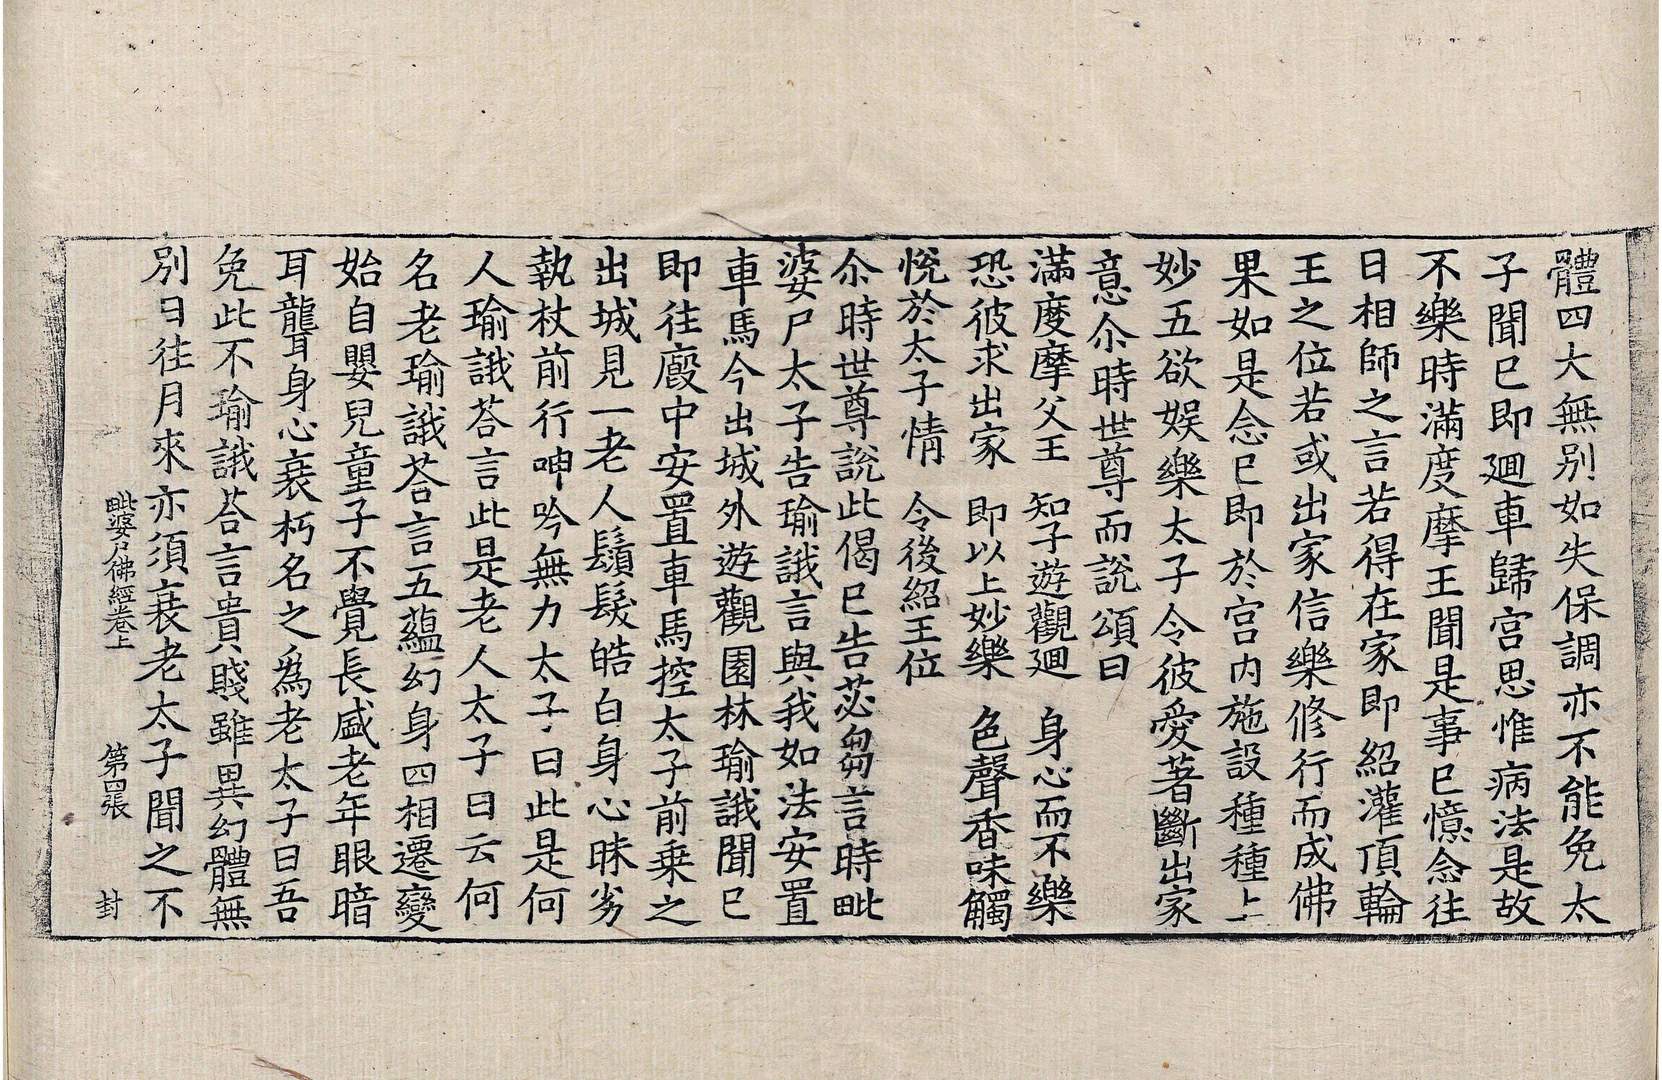 體四大無別如失保調亦不能免太
子聞已即廻車歸宮思惟病法是故
不樂時滿度摩王聞是事已憶念往
日相師之言若得在家即紹灌頂輪
王之位若或出家信樂修行而成佛
果如是念已即於宮内施設種種上
妙五欲娛樂太子令彼愛著斷出家
意尒時世尊而說頌曰
滿度摩父王　知子遊觀廻　身心而不樂
恐彼求出家　即以上妙樂　色聲香味觸
悅於太子情　令後紹王位
尒時世尊說此偈已告苾芻言時毗
婆尸太子告瑜誐言與我如法安置
車馬今出城外遊觀園林瑜誐聞已
即往廄中安置車馬控太子前乗之
出城見一老人鬚髮皓白身心昧劣
執杖前行呻吟無力太子曰此是何
人瑜誐荅言此是老人太子曰云何
名老瑜誐荅言五蘊幻身四相遷變
始自嬰兒童子不覺長盛老年眼暗
耳聾身心衰朽名之為老太子曰吾
免此不瑜誐荅言貴賤雖異幻體無
別日往月來亦須衰老太子聞之不
毗婆尸佛經卷上　第四張　封